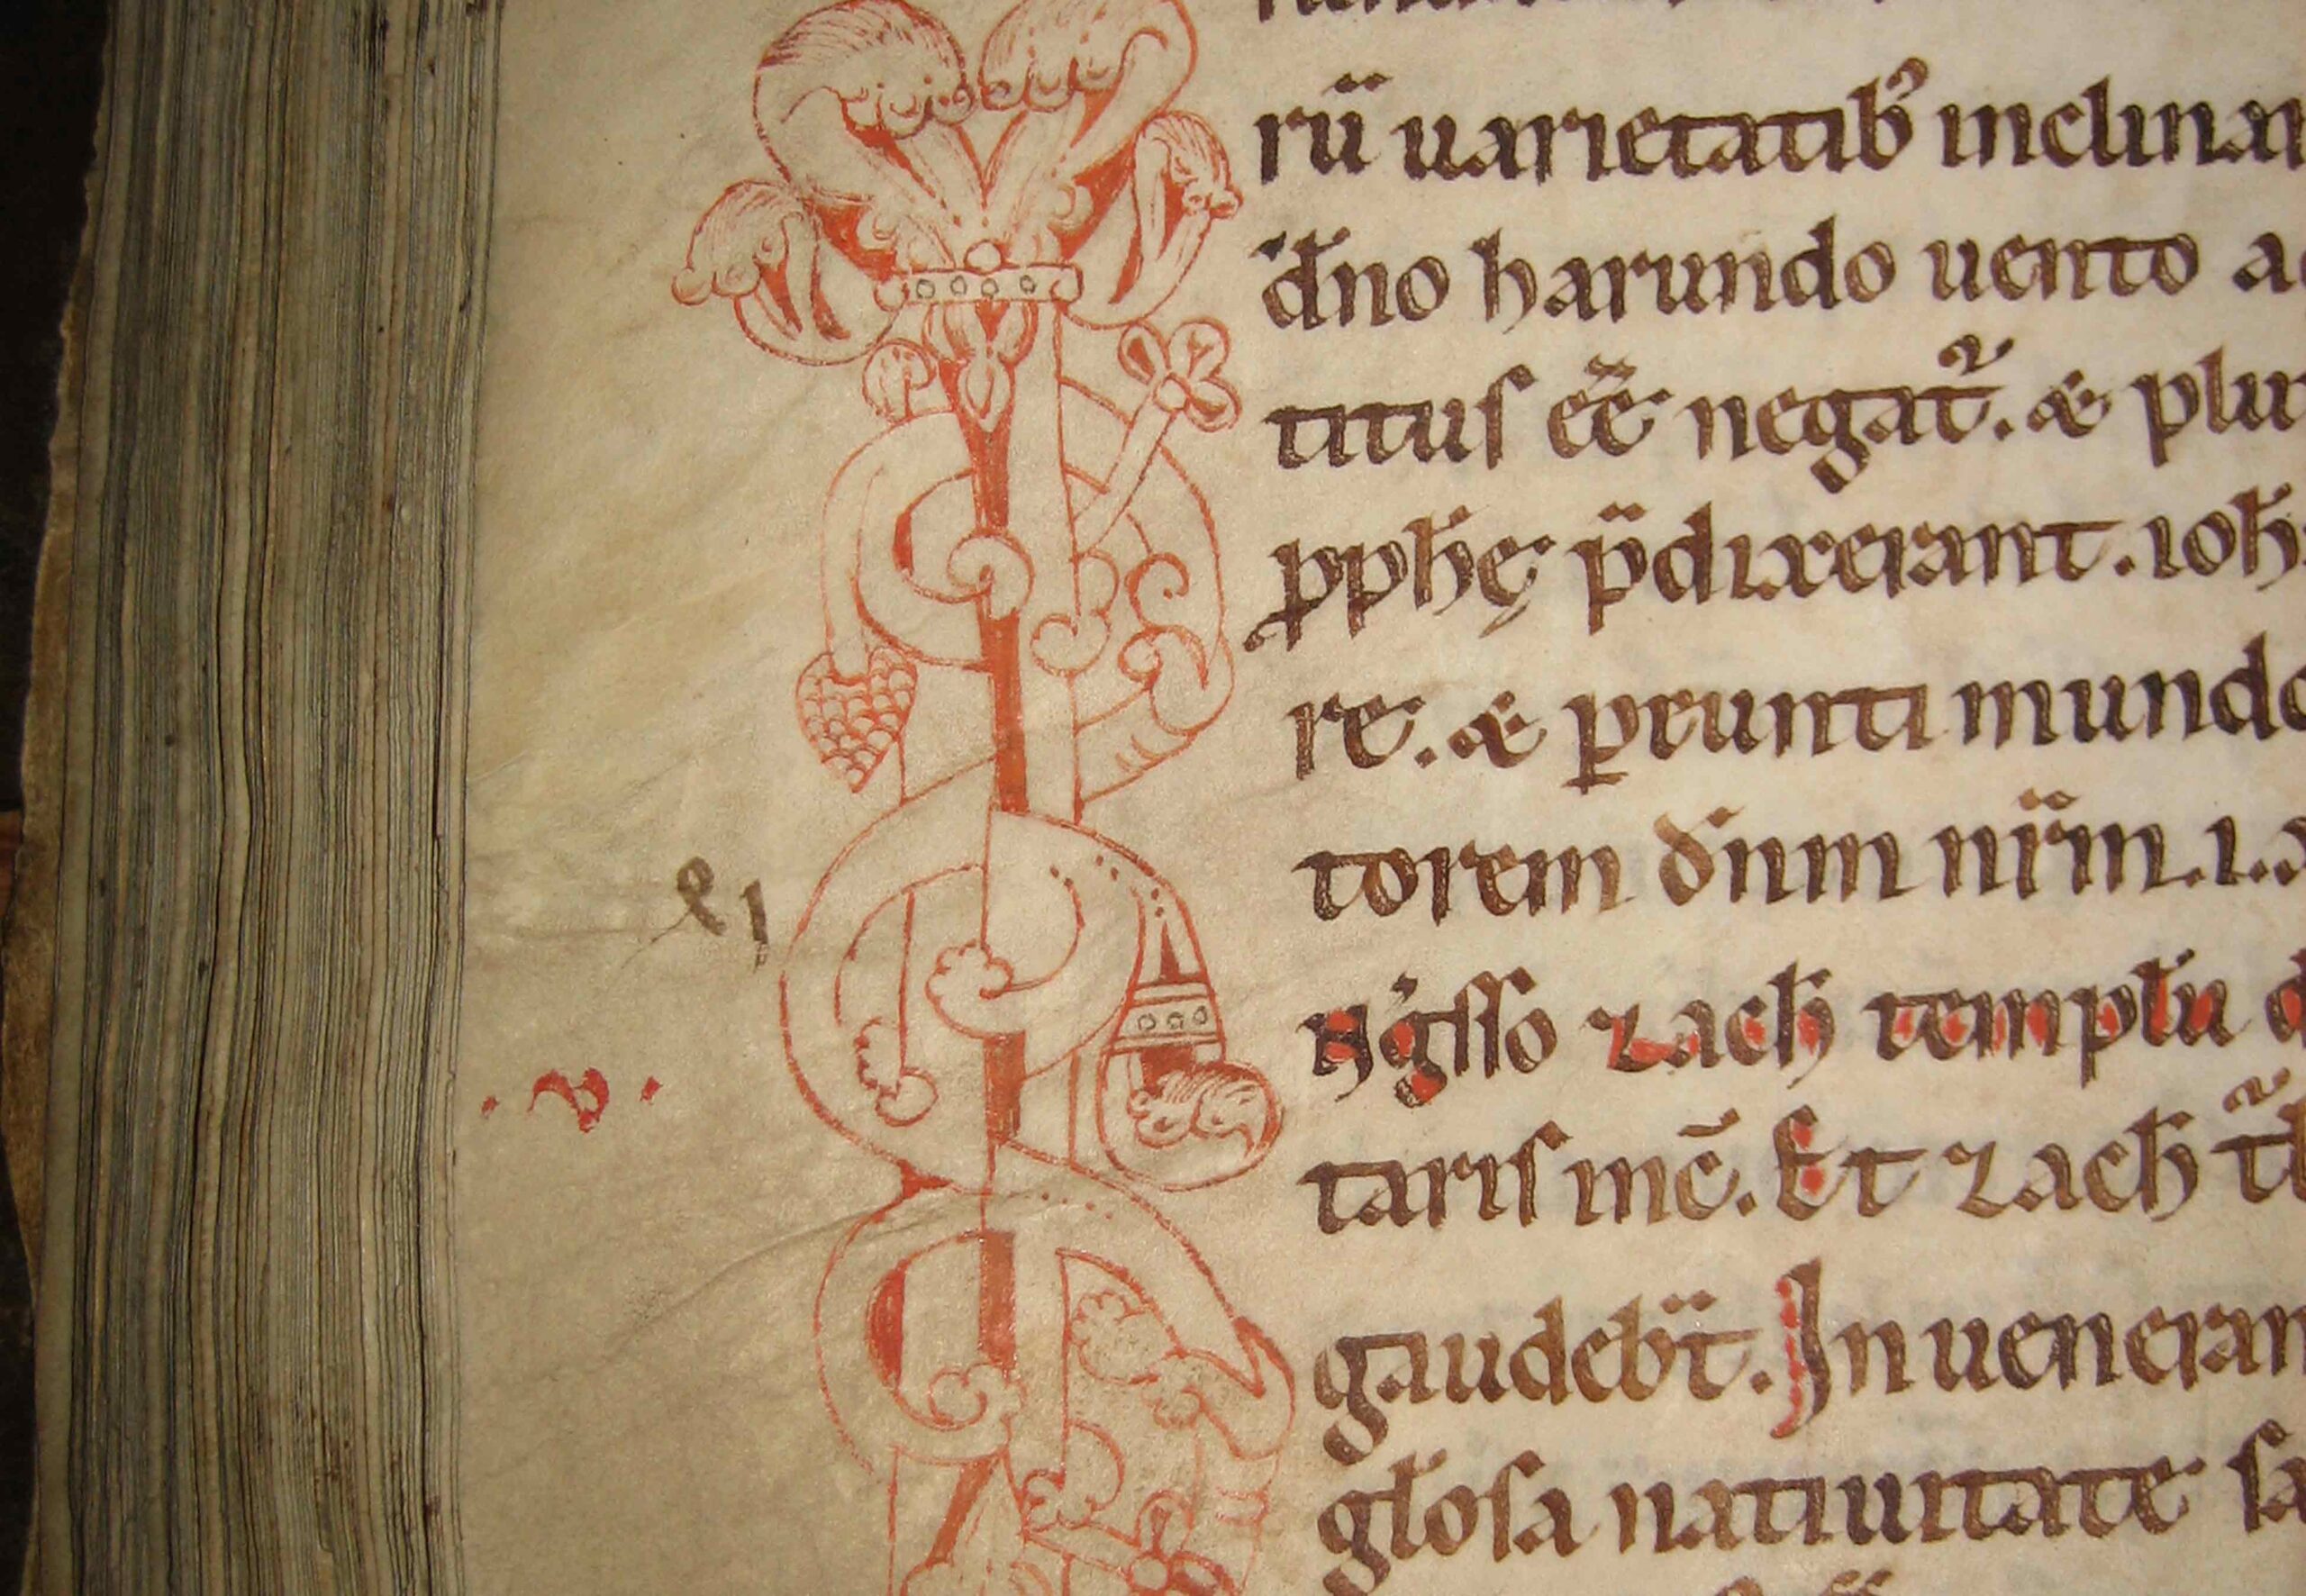 rũ uarietatib⁹ inclinar
dn̄o harundo uento a
titus eē negat᷑. & plur
ꝓph̄ę p̄dixerant. ioh̄
re. & ꝑeunti mundo
torem dn̄m nr̄m. i.
Ng̊sso zach̄ templū d
xl
taris inc̄. Et zach̄
.v.
gaudebt̄. In ueneran
gl̄osa natiuitate sa